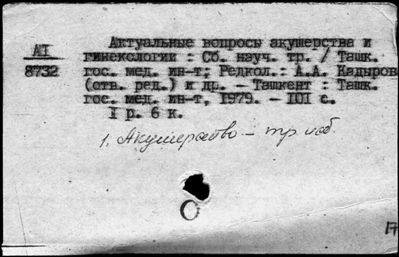 Актуальные вопросы акушерства и
АІ гинекологии : Сб. науч. тр. / Ташк.
8732 гос. мед. ин-т; Редкол.: А.А. Кадыров
(отв. ред.) и др. — Ташкент : Ташк.
гос. мед. ин-т, 1979. — 101 с.
I р. 6 к.
1. Акушерство —
17